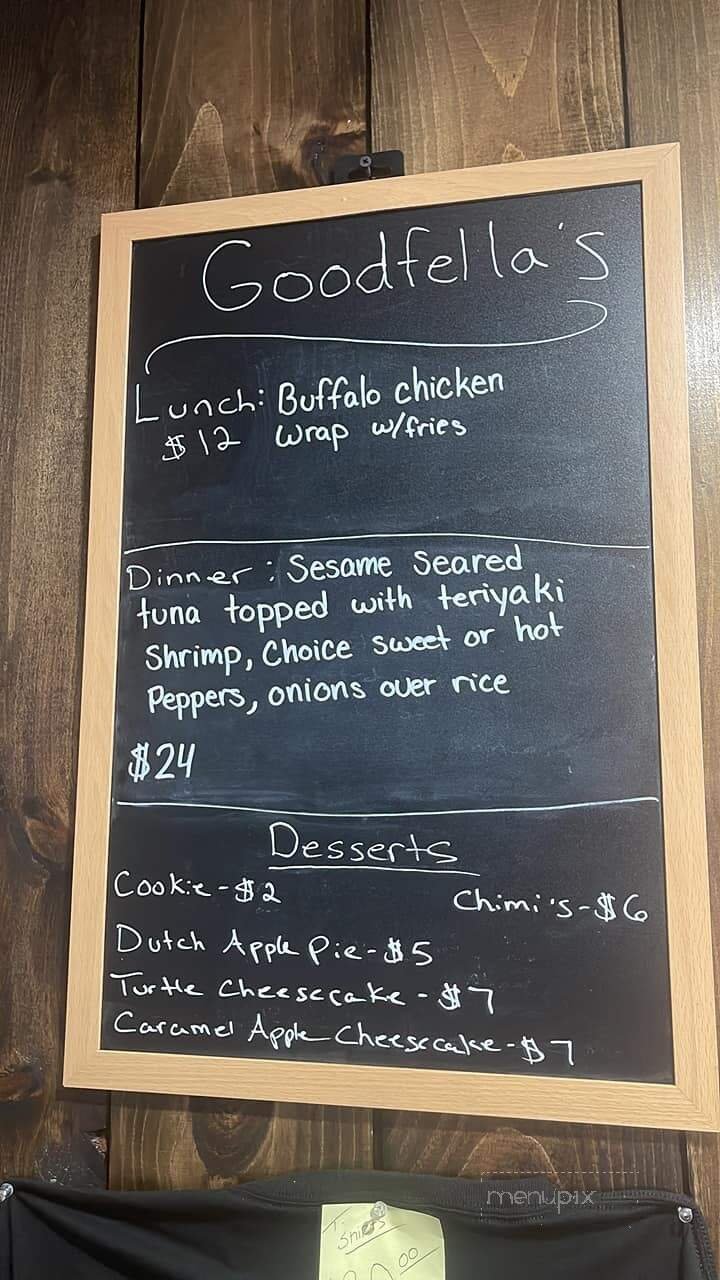 Goodfella's
Lunch: Buffalo chicken
$12 wrap w/fries
Dinner: Sesame seared
tuna topped with teriyaki
Shrimp, Choice sweet or hot
Peppers, onions over rice
$24
Desserts
Cookie-$2
Chimi's-$6
Dutch Apple Pie-$5
Turtle Cheesecake-$7
Caramel Apple Cheesecake-$7
menupix
T Shirts